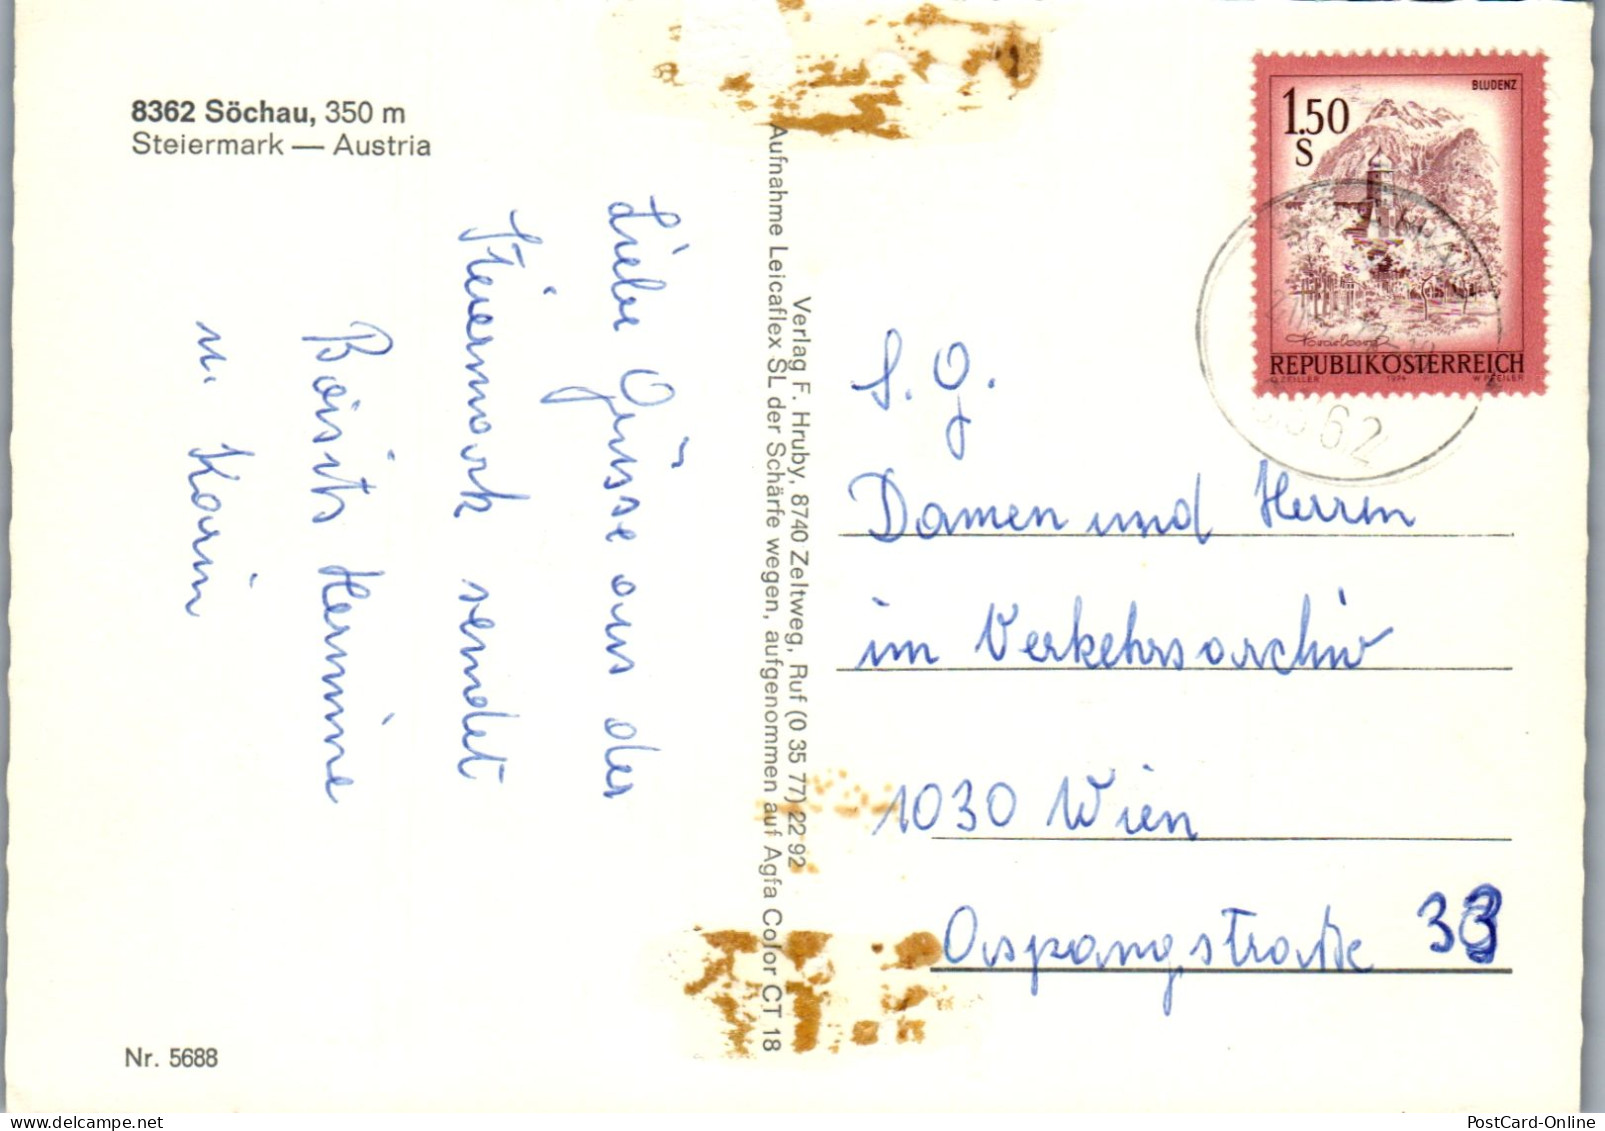 8362 Söchau, 350 m
Steiermark — Austria
Liebe Grüsse aus der
Steiermark sendet
Boisits Hermine
u. Karin
Verlag F. Hruby, 8740 Zeltweg, Ruf (0 35 77) 22 92
Aufnahme Leicaflex SL der Schärfe wegen, aufgenommen auf Agfa Color CT 18
BLUDENZ
1.50
S
Vorarlberg
REPUBLIK ÖSTERREICH
O. ZEILLER 1974 W. PFEILER
8362
S. G.
Damen und Herren
im Verkehrsarchiv
1030 Wien
Aspangstraße 33
Nr. 5688
PostCard-Online